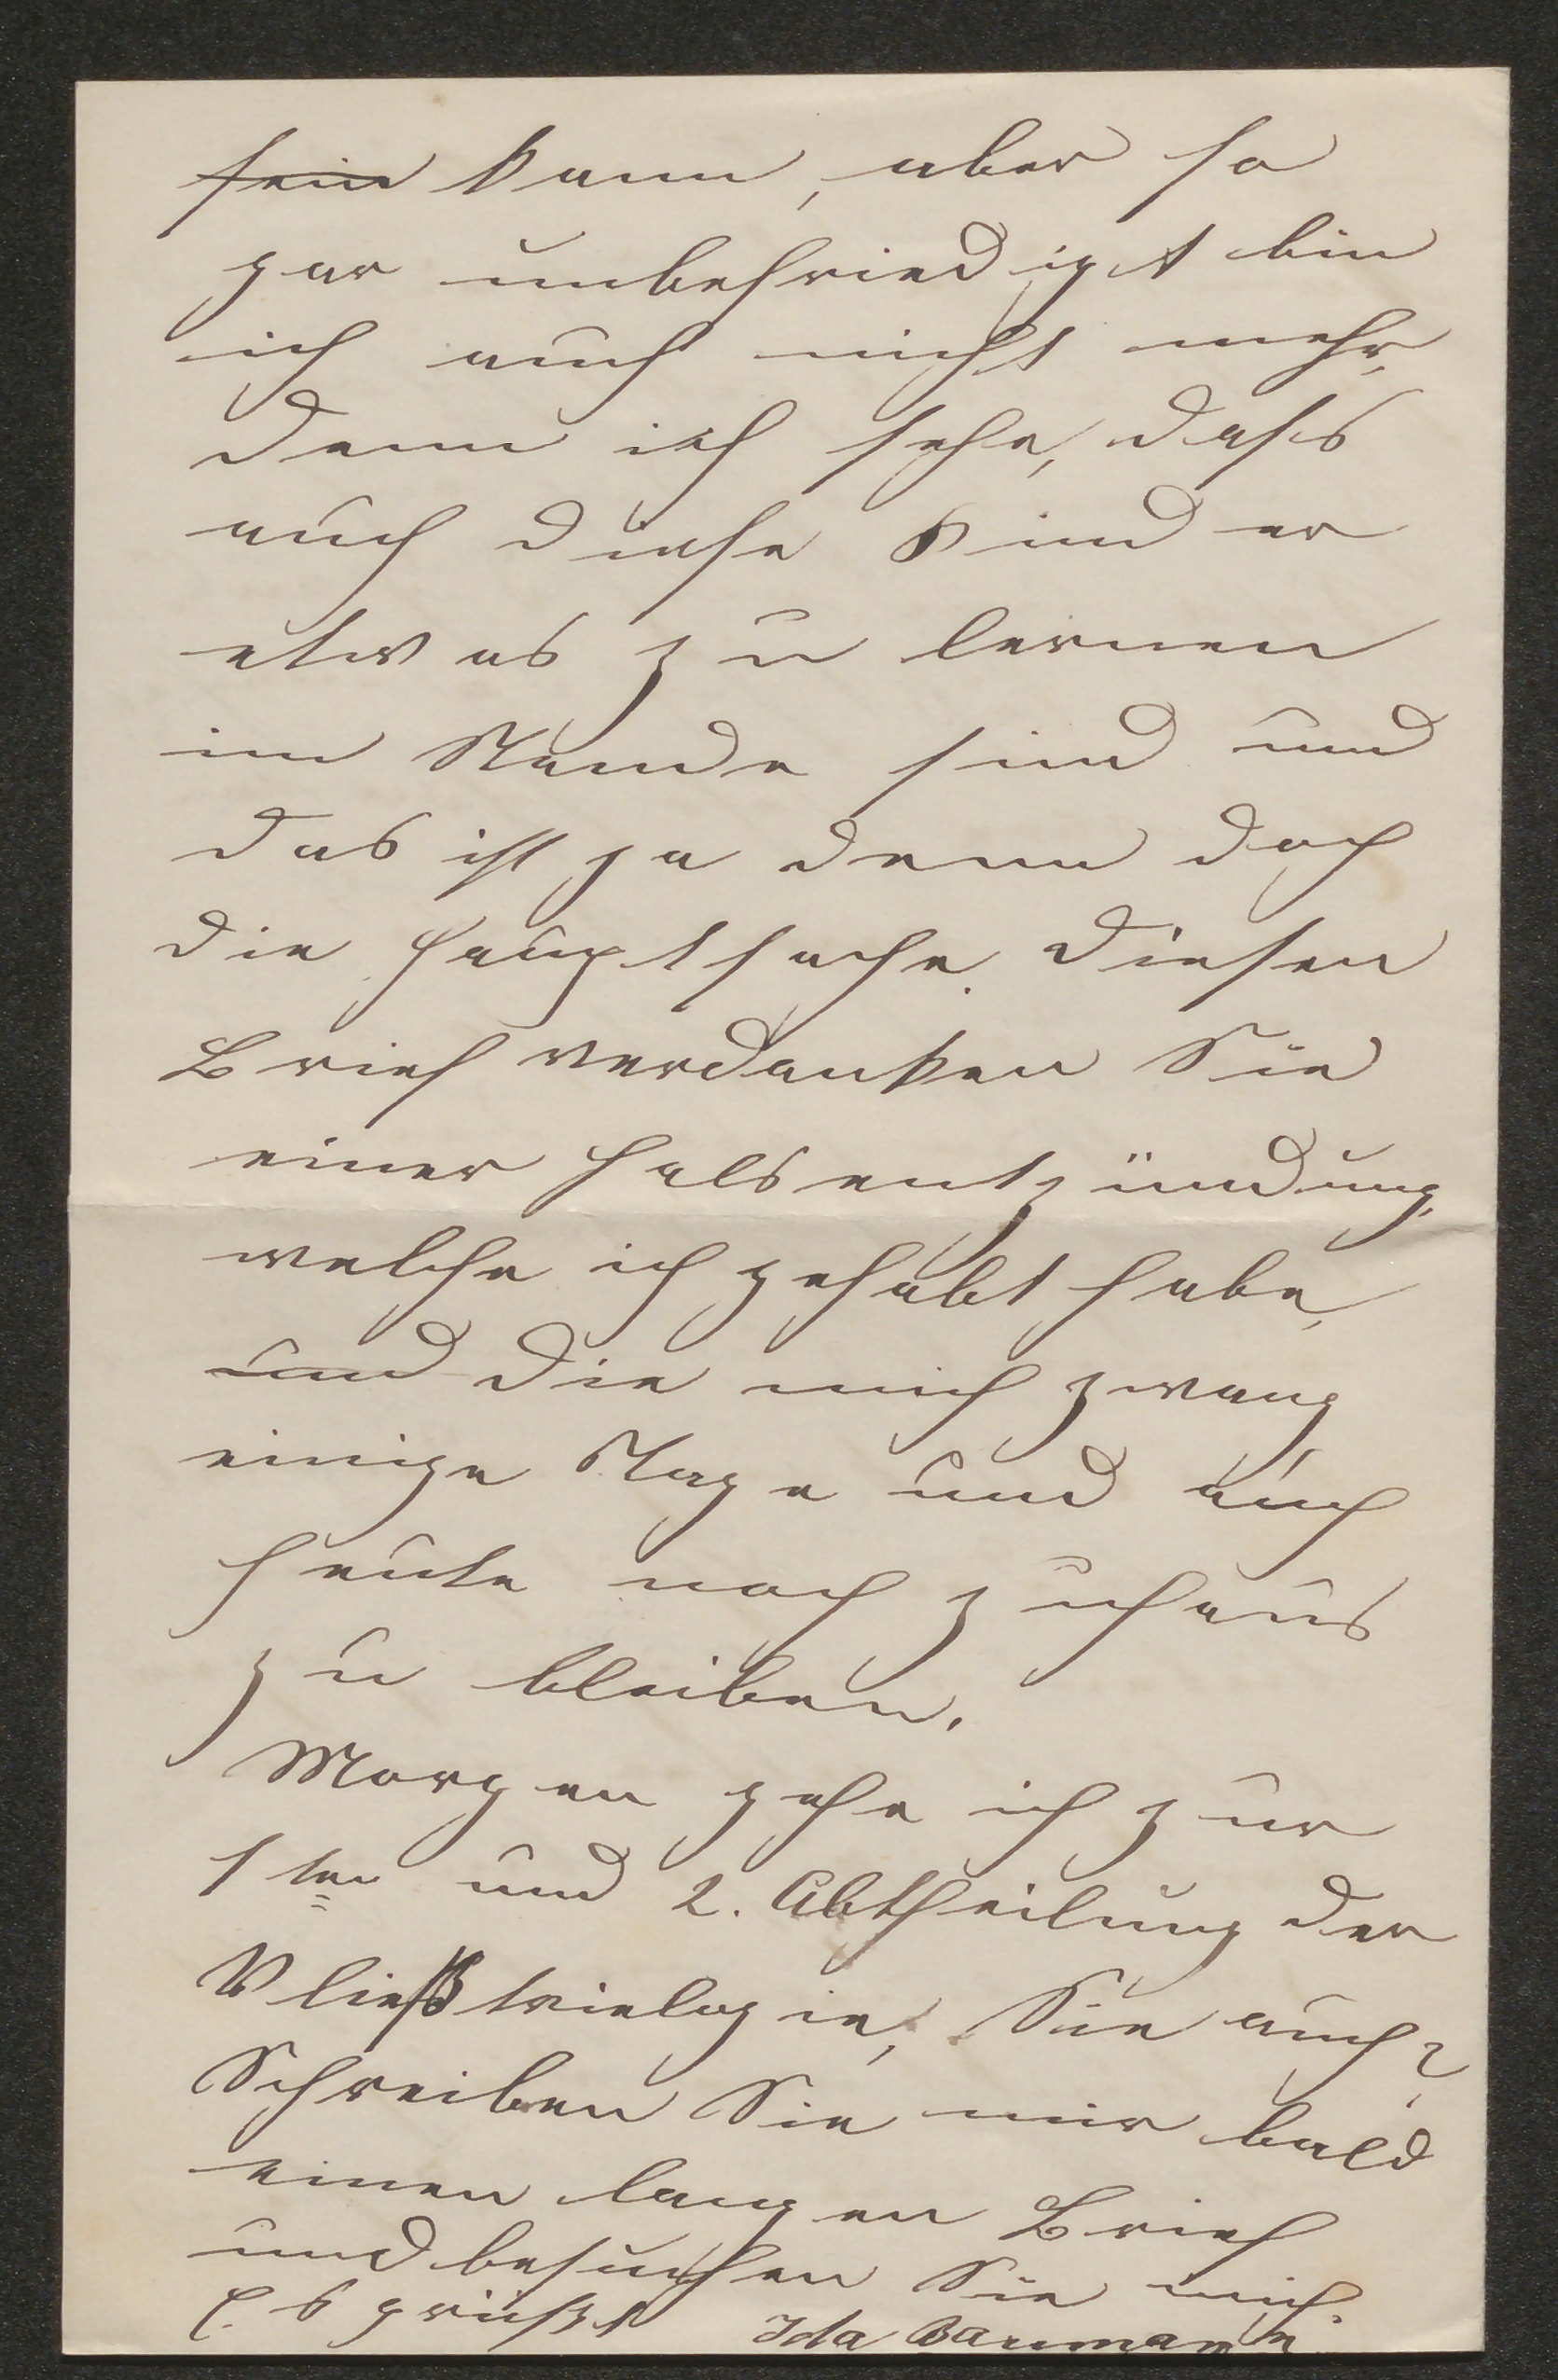 sein kann, aber so
gar unbefriedigt bin
ich auch nicht mehr,
denn ich sehe, dass
auch diese Kinder
etwas zu lernen
im Stande sind und
das ist ja denn doch
die Hauptsache. Diesen
Brief verdanken Sie
einer Halsentzündung,
welche ich gehabt habe,
und die mich zwang
einige Tage und auch
heute noch zuhaus
zu bleiben.
Morgen gehe ich zur
1ten und 2. Abtheilung der
Vließtrielogie, Sie auch?
Schreiben Sie mir bald
einen langen Brief
und besuchen Sie mich.
Es grüßt Ida Baumann.